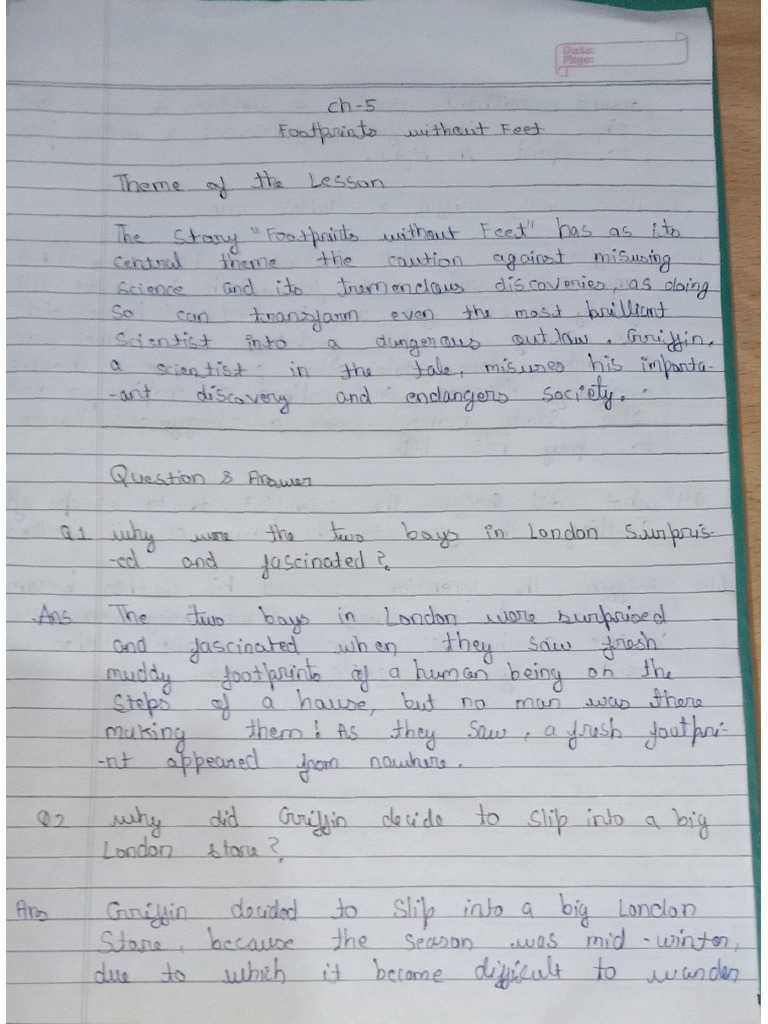 Date:
Page:
Ch-5
Footprints without Feet
Theme of the Lesson
The Story "Footprints without Feet" has as its
central theme the caution against misusing
science and its tremendous discoveries, as doing
so can transform even the most brilliant
scientist into a dangerous outlaw. Griffin,
a scientist in the tale, misuses his importa-
-ant discovery and endangers society.
Question & Answer
Q1 Why were the two boys in London surpris-
-ed and fascinated?
Ans The two boys in London were surprised
and fascinated when they saw fresh
muddy footprints of a human being on the
steps of a house, but no man was there
making them! As they saw, a fresh footpri-
-nt appeared from nowhere.
Q2 Why did Griffin decide to slip into a big
London store?
Ans Griffin decided to slip into a big London
Store, because the season was mid-winter,
due to which it become difficult to wander